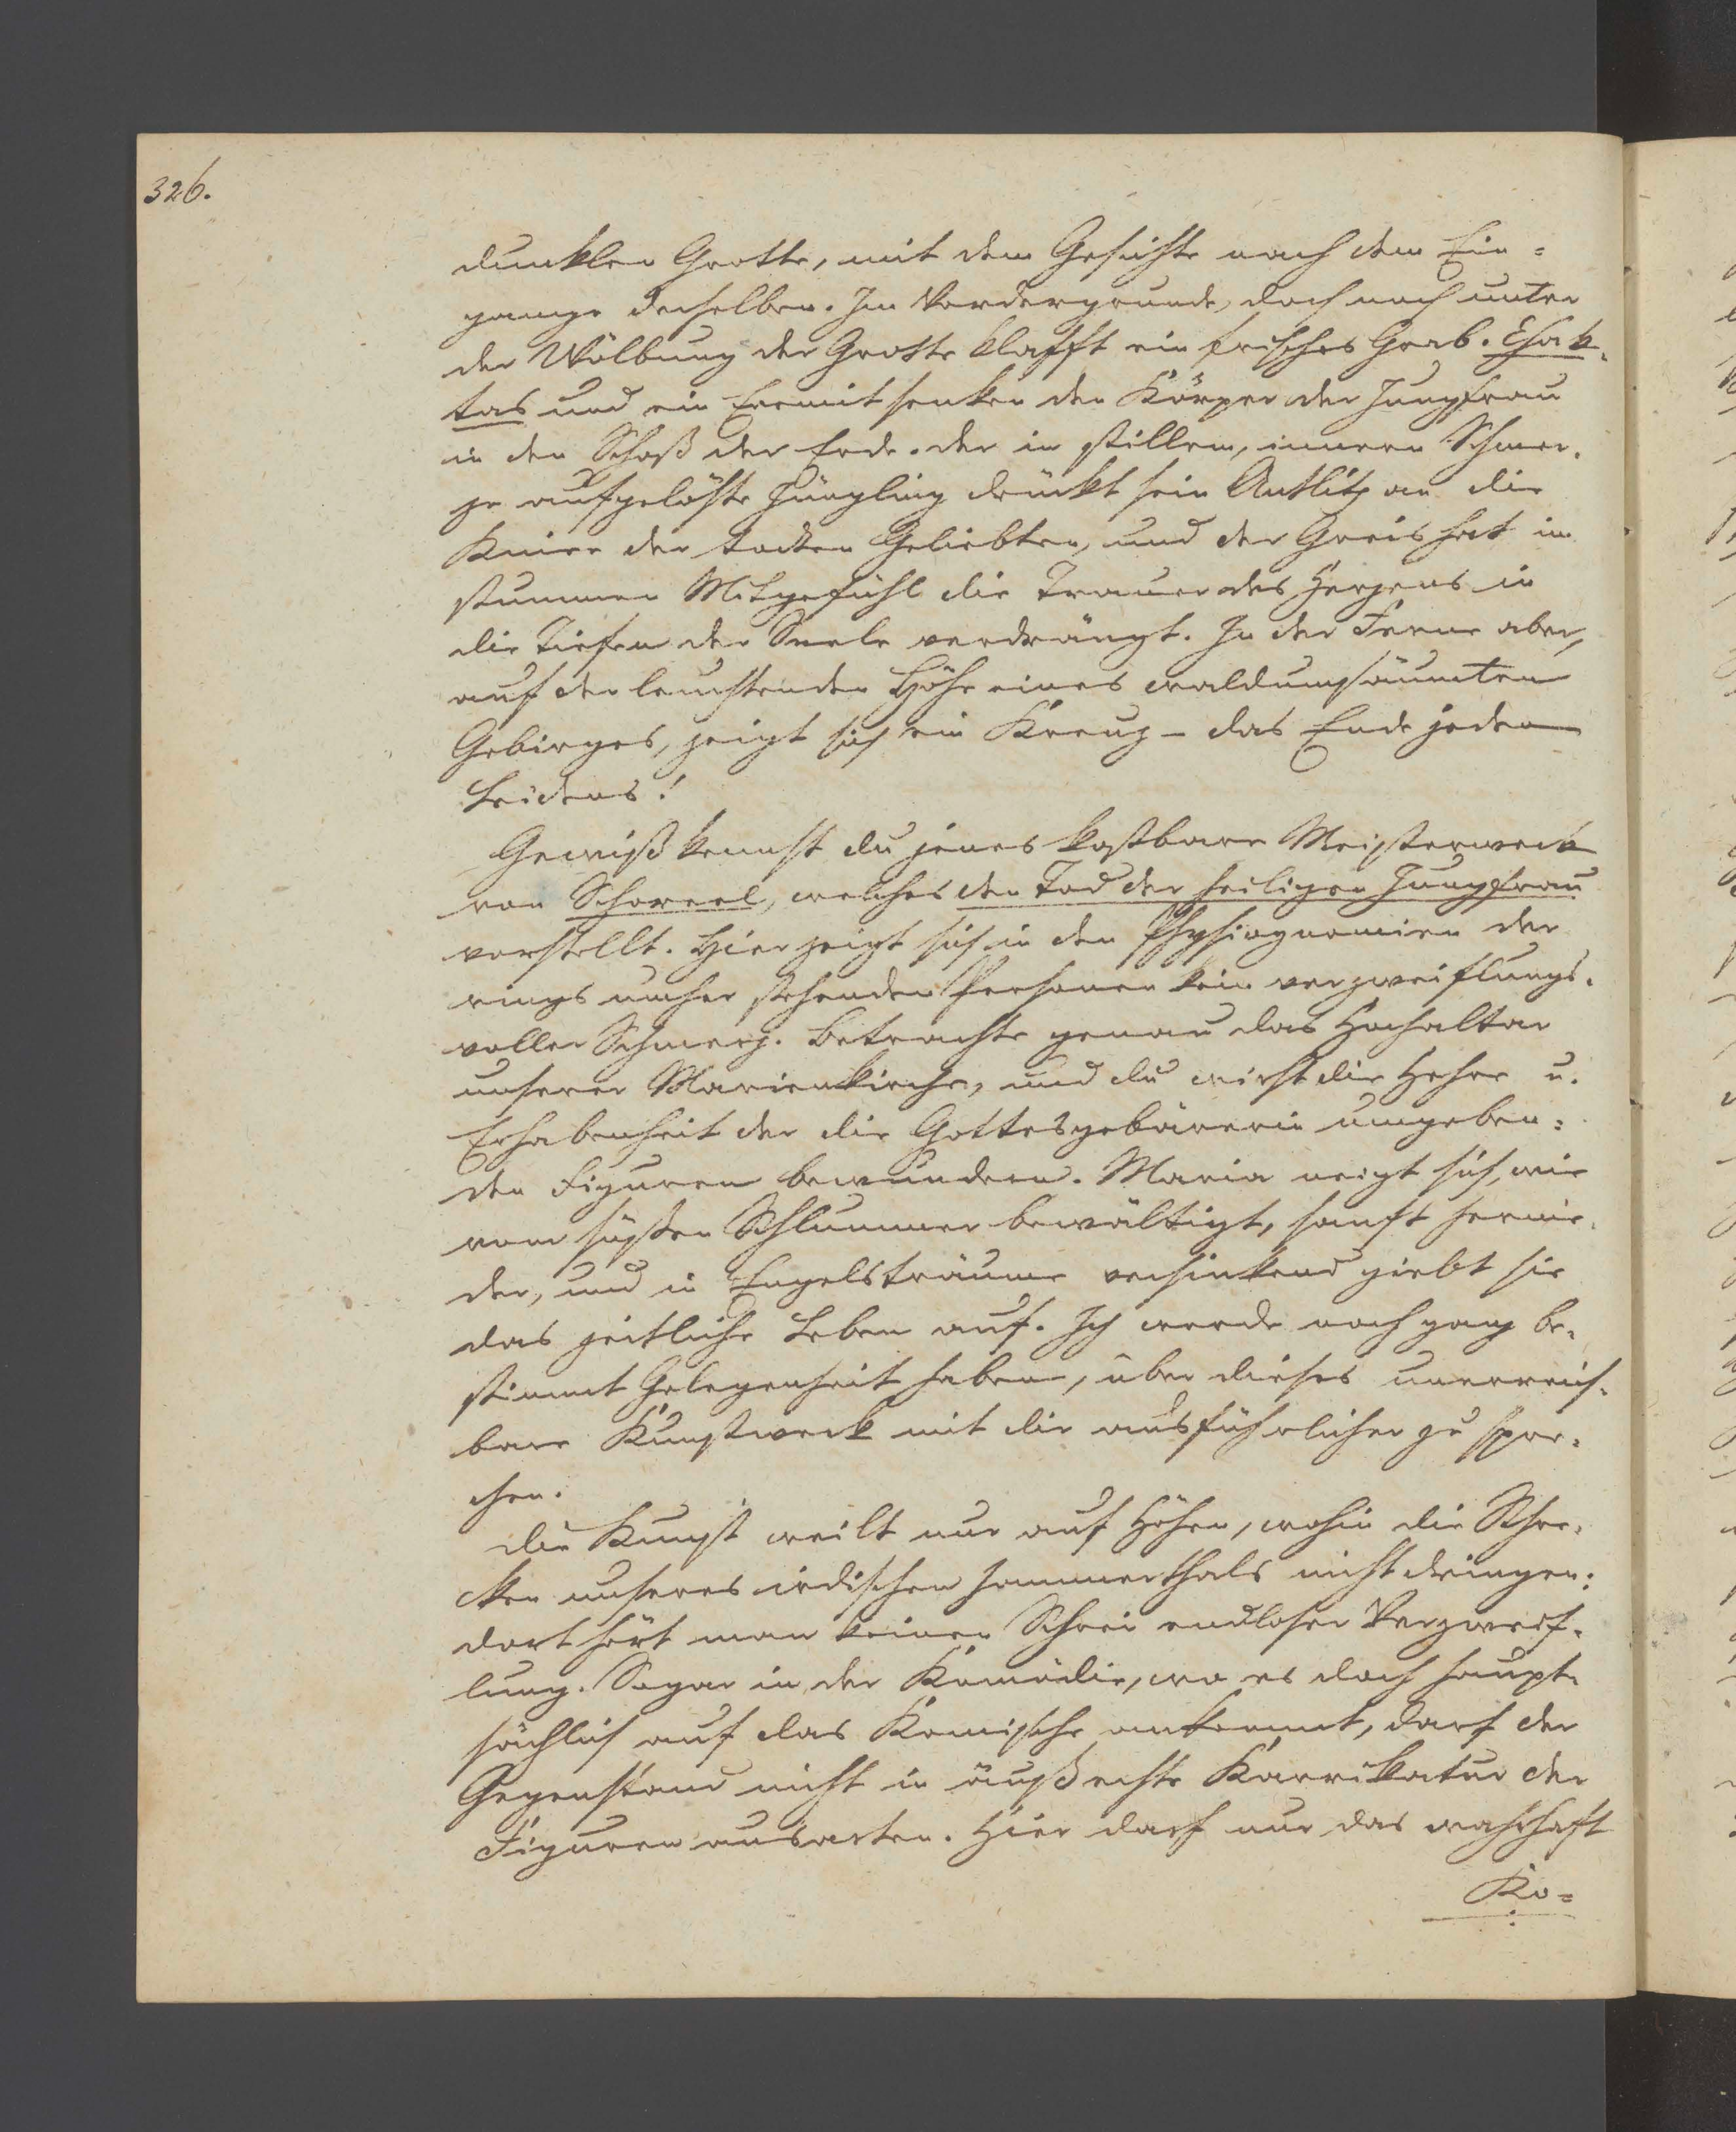 326.
dunklen Grotte, mit dem Gesichte nach dem Ein=
gange derselben. Im Vordergrunde, doch noch unter
der Wölbung der Grotte klafft ein frisches Grab. Chak=
tas und ein Eremit senken den Körper der Jungfrau
in den Schoß der Erde. Der in stillem, innern Schmer=
ze aufgelöste Jüngling drückt sein Antlitz an die
Kniee der todten Geliebten, und der Greis hat im
stummen Mitgefühl die Trauer des Herzens in
die Tiefen der Seele verdrängt. In der Ferne aber,
auf der leuchtenden Höhe eines waldumsäumten
Gebirges, zeigt sich ein Kreuz – das Ende jeden
Leidens!
Gewiß kennst du jenes kostbare Meisterwerk
von Schoreel, welches den Tod der heiligen Jungfrau
vorstellt. Hier zeigt sich in den Physiognomien der
rings umher stehenden Personen kein verzweiflungs=
voller Schmerz. Betrachte genau das Hochaltar
unserer Marienkirche, und du wirst die Hehre u.
Erhabenheit der die Gottesgebärerin umgeben=
den Figuren bewundern. Maria neigt sich, wie
vom süßen Schlummer bewältigt, sanft hernie=
der, und in Engelsträume versinkend giebt sie
das zeitliche Leben auf. Ich werde noch ganz be=
stimmt Gelegenheit haben, über dieses unerreich=
bare Kunstwerk mit dir ausführlicher zu spre=
chen.
Die Kunst weilt nur auf Höhen, wohin die Schre=
cken unseres irdischen Jammerthals nicht dringen:
dort hört man keinen Schrei endloser Verzweif=
lung. Sogar in der Komödie, wo es doch haupt=
sächlich auf das Komische ankommt, darf der
Gegenstand nicht in äußerste Karrikatur der
Figuren ausarten. Hier darf nur das wahrhaft
Ko=